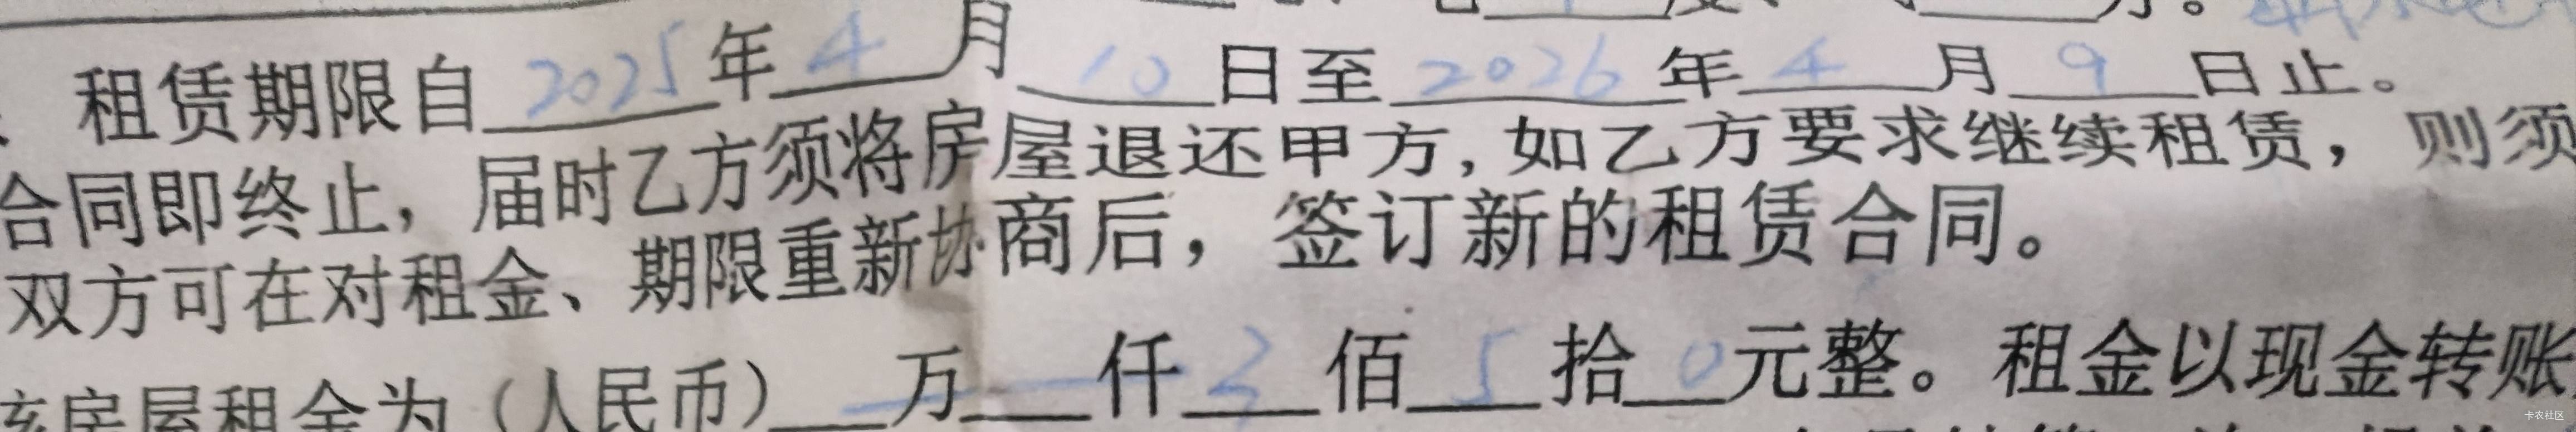 租赁期限自2025年4月10日至2026年4月9日止。
合同即终止，届时乙方须将房屋退还甲方，如乙方要求继续租赁，则须
双方可在对租金、期限重新协商后，签订新的租赁合同。
该房屋租金为（人民币）——万——仟3佰5拾0元整。租金以现金转账
卡农社区